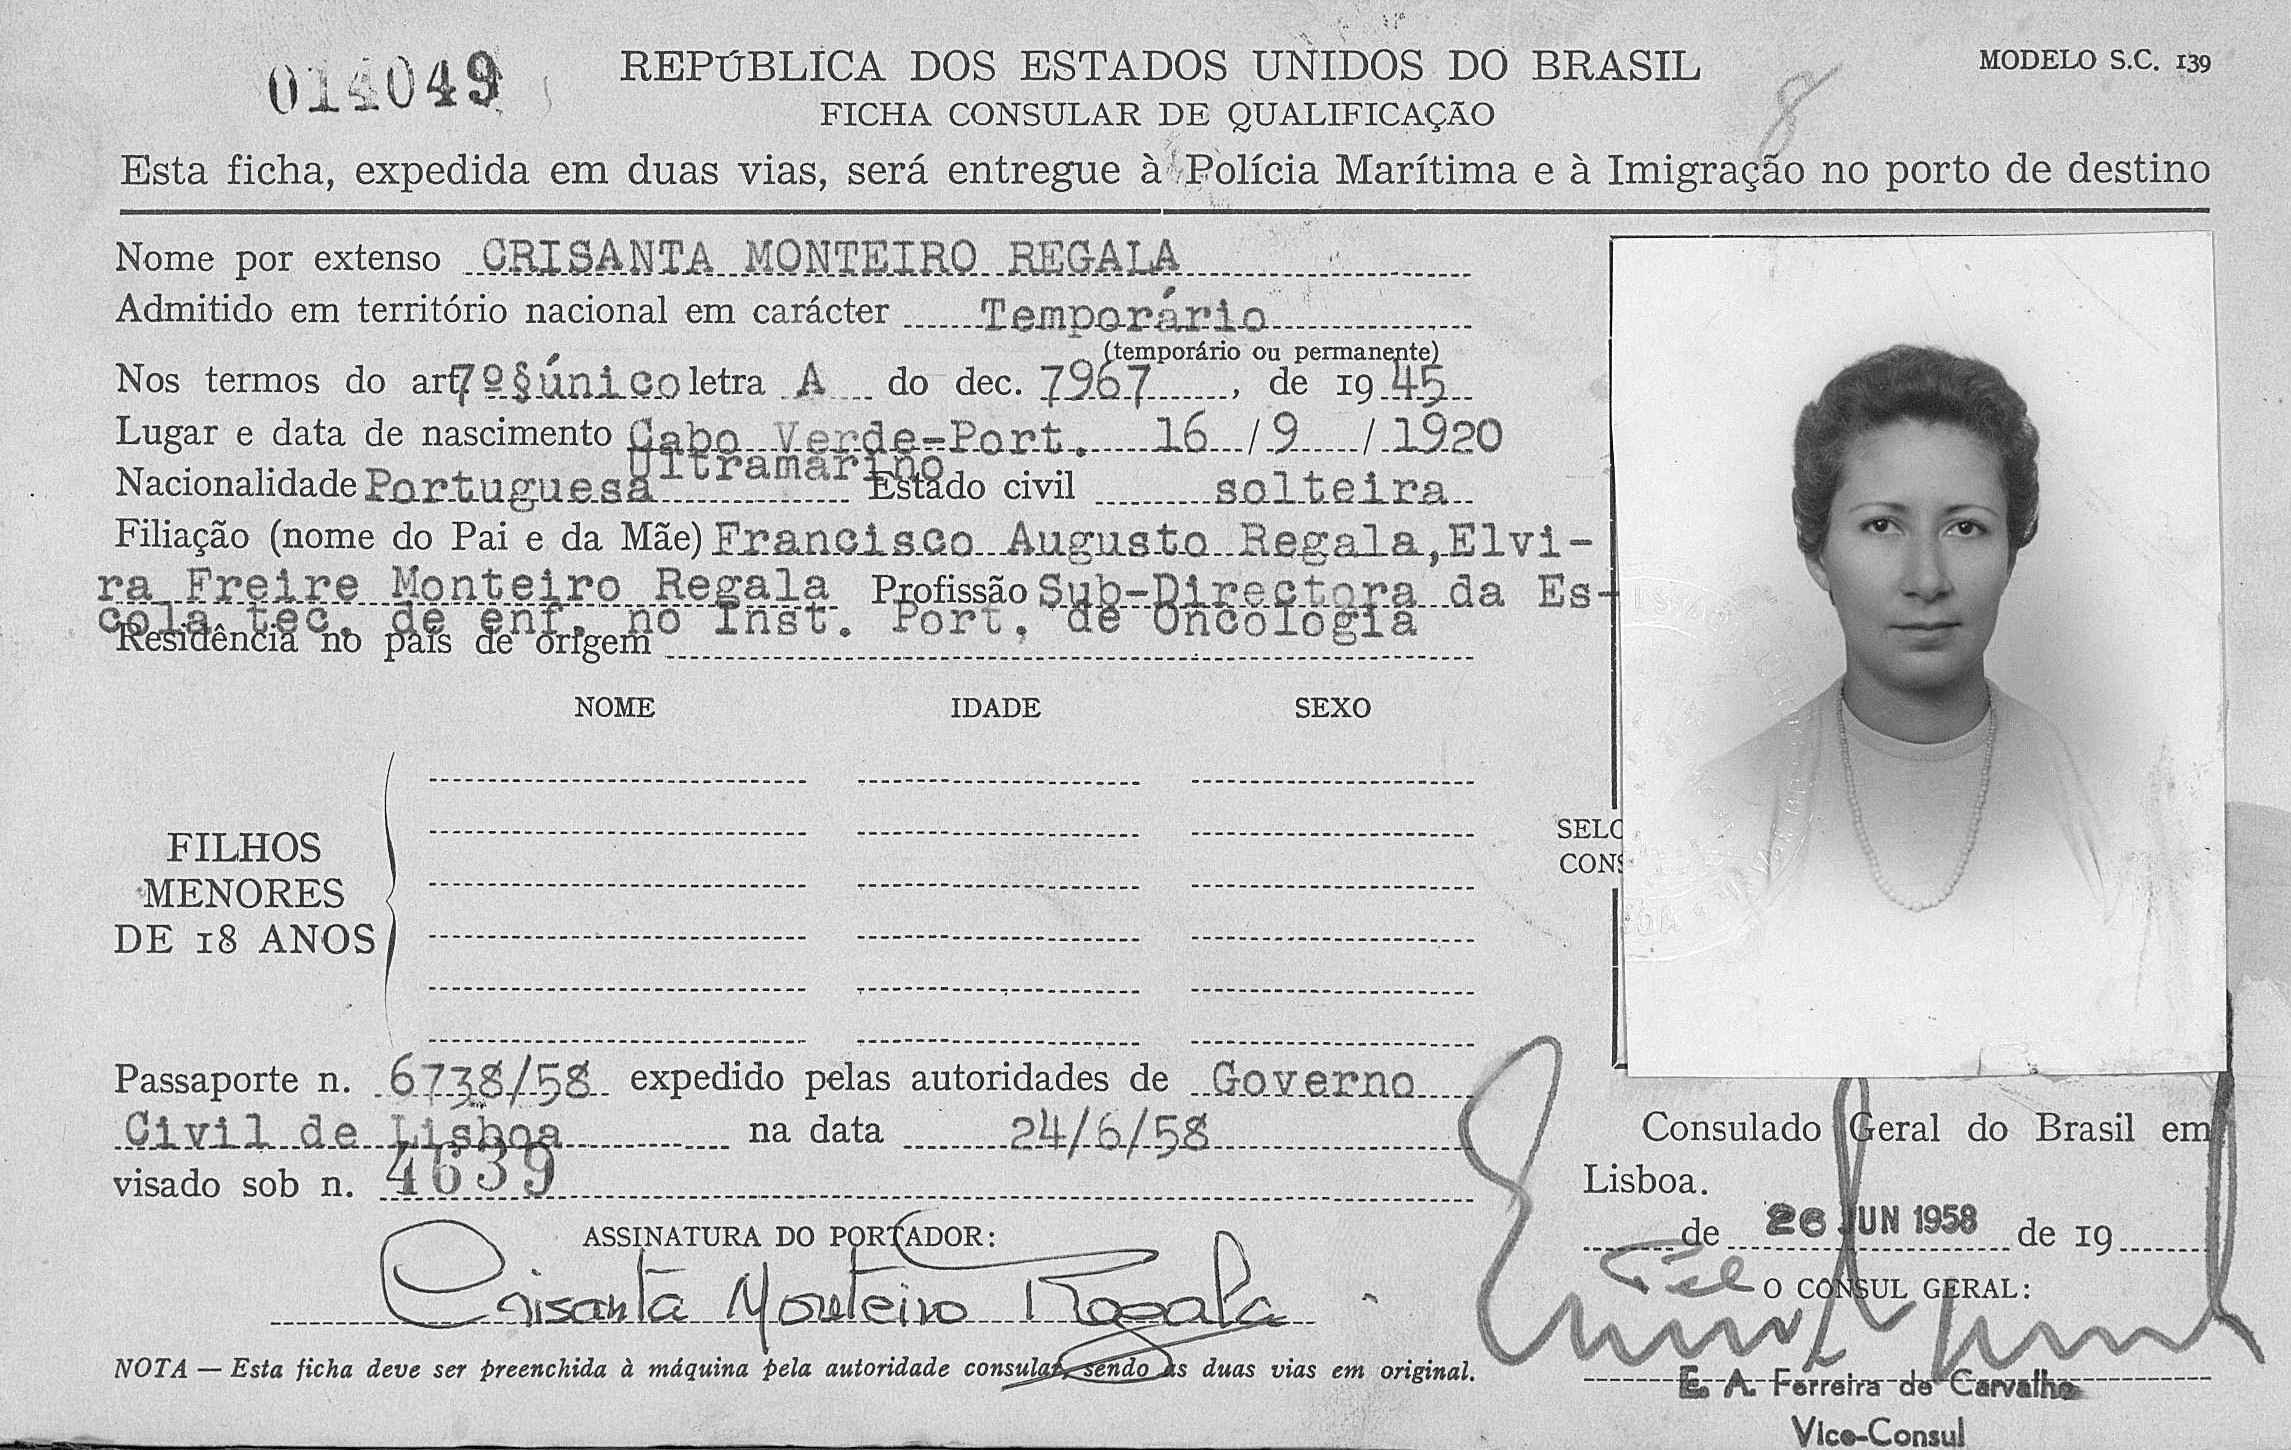 014049
REPÚBLICA DOS ESTADOS UNIDOS DO BRASIL
MODELO S.C. 139
FICHA CONSULAR DE QUALIFICAÇÃO
8
Esta ficha, expedida em duas vias, será entregue à Polícia Marítima e à Imigração no porto de destino
Nome por extenso CRISANTA MONTEIRO REGALA
Admitido em território nacional em carácter Temporário
(temporário ou permanente)
Nos termos do art. 7º § único letra A do dec. 7967, de 1945
Lugar e data de nascimento Cabo Verde-Port. 16/9/1920
Ultramarino
Nacionalidade Portuguesa Estado civil solteira
Filiação (nome do Pai e da Mãe) Francisco Augusto Regala, Elvi-
ra Freire Monteiro Regala Profissão Sub-Directora da Es-
cola tec. de enf. no Inst. Port. de Oncologia
Residência no país de origem
NOME IDADE SEXO
FILHOS
MENORES
DE 18 ANOS
SELO
CONS
Passaporte n. 6738/58 expedido pelas autoridades de Governo
Civil de Lisboa na data 24/6/58
visado sob n. 4639
ASSINATURA DO PORTADOR:
Crisanta Monteiro Regala
NOTA — Esta ficha deve ser preenchida à máquina pela autoridade consular, sendo as duas vias em original.
Consulado Geral do Brasil em
Lisboa.
de 26 JUN 1958 de 19
O CONSUL GERAL:
E. A. Ferreira de Carvalho
Vice-Consul